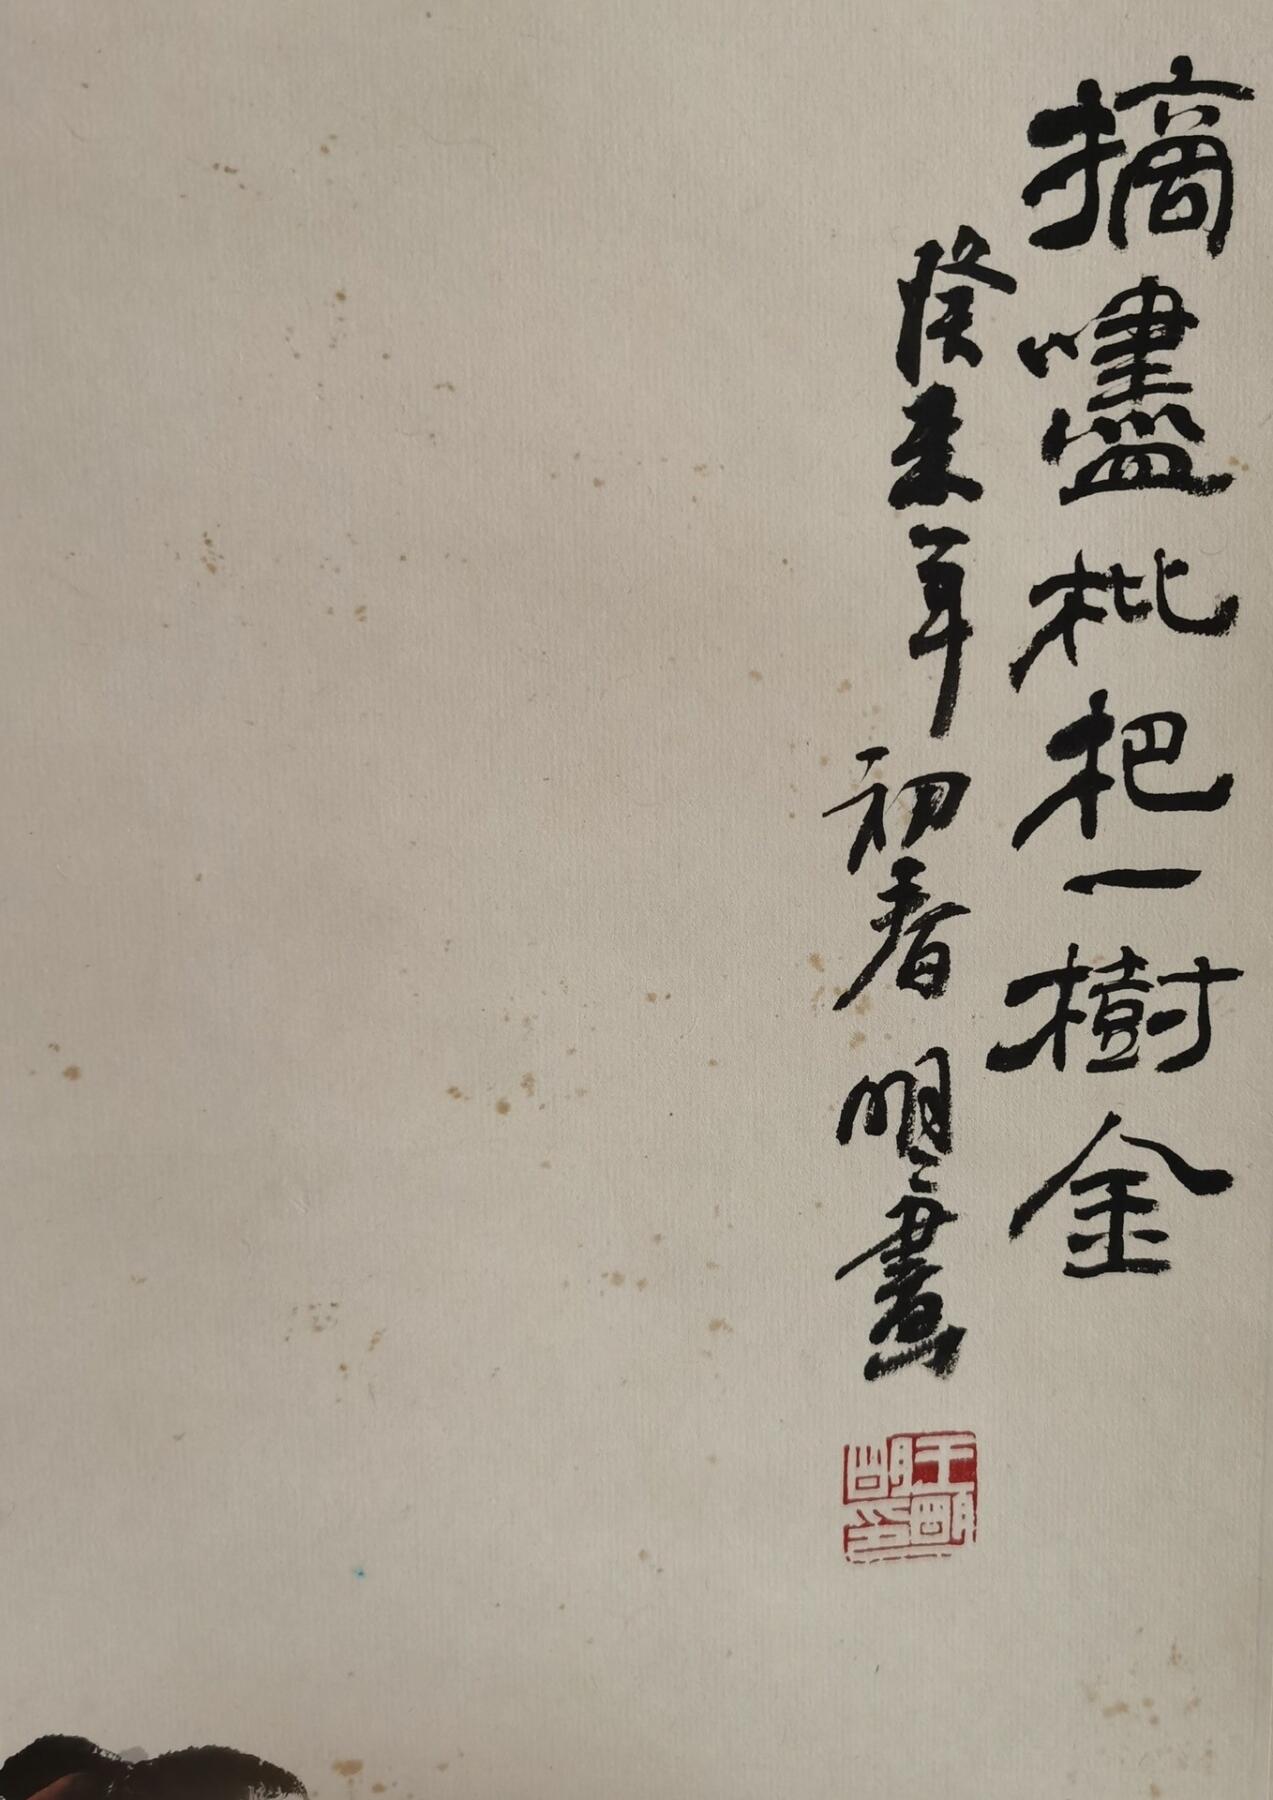 摘嚍枇杷一樹金
癸未年初春明明畫
王明明印